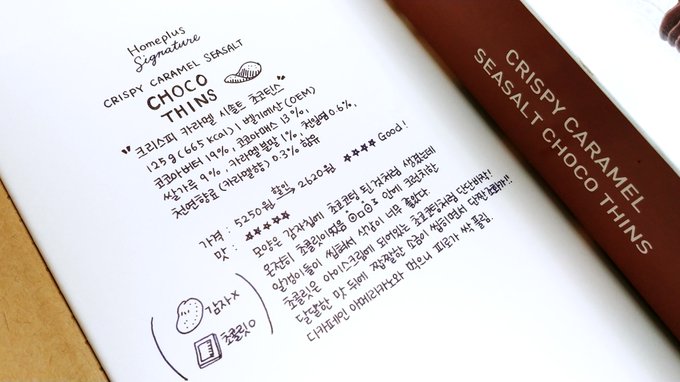 Homeplus
Signature
CRISPY CARAMEL SEASALT
CHOCO
THINS
"크리스피 카라멜 시솔트 초코틴스"
125g (665 kcal) | 벨기에산 (OEM)
코코아버터 19%, 코코아매스 13%,
쌀가루 9%, 카라멜 분말 1%, 천일염 0.6%,
천연향료 (카라멜향) 0.3% 함유
가격 : 5250원 할인 → 2620원 ★★★★ Good!
맛 : ★★★★★
모양은 감자칩에 초코코팅 된 것처럼 생겼는데
온전히 초콜릿이었음 안에 크런치한
알갱이들이 씹혀서 식감이 너무 좋았다.
초콜릿은 아이스크림에 되어있는 초코코팅처럼 단단바삭!
달달한 맛 뒤에 짭짤한 소금이 씹히면서 단짠 조화가!!
디카페인 아메리카노와 먹으니 피로가 싹 풀림.
감자 X
초콜릿 O
CRISPY CARAMEL
SEASALT CHOCO THINS